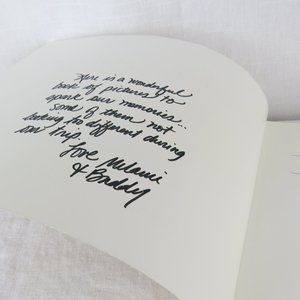 Here is a wonderful
book of pictures to
spark our memories...
some of them not
looking so different during
our trip.
Love Melanie
& Buddy